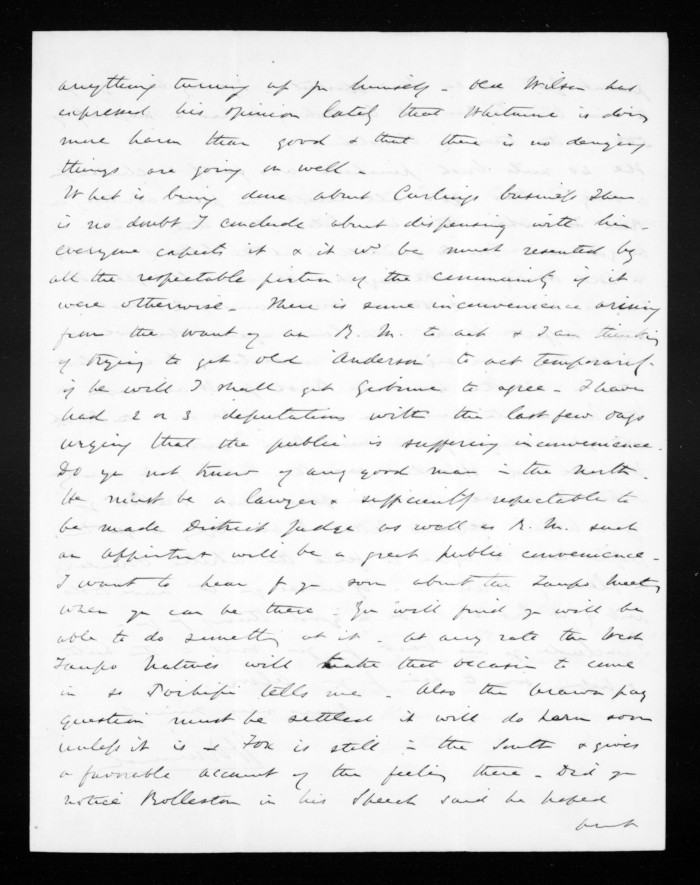 anything turning up for himself - Old Wilson has
expressed his opinion lately that Whitmore is doing
more harm than good & that there is no denying
things are going on well -
What is being done about Curlings business There
is no doubt I conclude about dispensing with him -
everyone expects it & it wd. be much resented by
all the respectable portion of the community if it
were otherwise - There is some inconvenience arising
from the want of an R. M. to act & I am thinking
of trying to get old Anderson to act temporarily -
if he will I shall get Gisborne to agree - I have
had 2 or 3 deputations with the last few days
urging that the public is suffering inconvenience -
Do you not know of any good man in the North -
He must be a lawyer & sufficiently respectable to
be made District Judge as well as R. M. such
an appointmt will be a great public convenience -
I want to hear fr you soon about the Taupo Meeting
when you can be there - You will find you will be
able to do something at it - at any rate the West
Taupo Natives will take that occasion to come
in so Torihifi tells me - Also the pay
question must be settled it will do harm soon
unless it is - Fox is still in the South & gives
a favorable account of the feeling there - Did you
notice Rolleston in his Speech said he hoped
but